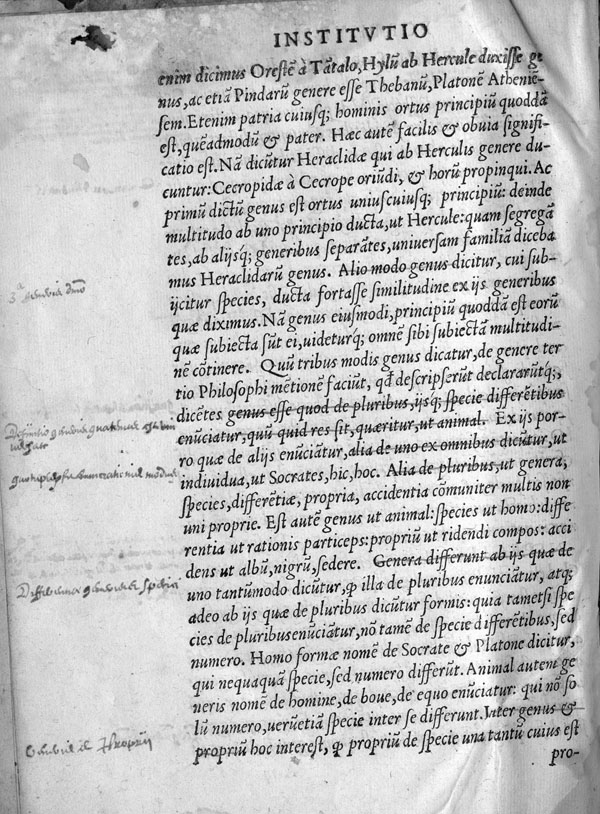 INSTITVTIO
enim dicimus Orestē à Tātalo, Hylū ab Hercule duxisse ge
nus, ac etiā Pindarū genere esse Thebanū, Platonē Athenie-
sem. Etenim patria cuiusq; hominis ortus principiū quoddā
est, quēadmodū & pater. Hæc autē facilis & obuia signifi-
catio est. Nā dicūtur Heraclidæ qui ab Herculis genere du-
cuntur: Cecropidæ à Cecrope oriūdi, & horū propinqui. Ac
primū dictū genus est ortus uniuscuiusq; principiū: deinde
multitudo ab uno principio ducta, ut Hercule: quam segregā
tes, ab alijsq; generibus separātes, uniuersam familiā diceba
mus Heraclidarū genus. Alio modo genus dicitur, cui sub-
ijcitur species, ducta fortasse similitudine ex ijs generibus
quæ diximus. Nā genus eiusmodi, principiū quoddā est eorū
quæ subiecta sūt ei, uideturq; omnē sibi subiectā multitudi-
nē cōtinere. Quū tribus modis genus dicatur, de genere ter
tio Philosophi mētionē faciūt, qd descripserūt declararūtq;,
dicētes genus esse quod de pluribus, ijsq; specie differētibus
enūciatur, quū quid res sit, quæritur, ut animal. Ex ijs por-
rò quæ de alijs enūciātur, alia de uno ex omnibus dicūtur, ut
indiuidua, ut Socrates, hic, hoc. Alia de pluribus, ut genera,
species, differētiæ, propria, accidentia cōmuniter multis non
uni proprie. Est autē genus ut animal: species ut homo: diffe
rentia ut rationis particeps: propriū ut ridendi compos: acci
dens ut albū, nigrū, sedere. Genera differunt ab ijs quæ de
uno tantūmodo dicūtur, ꝙ illa de pluribus enunciātur, atq;
adeo ab ijs quæ de pluribus dicūtur formis: quia tametsi spe
cies de pluribus enūciātur, nō tamē de specie differētibus, sed
numero. Homo formæ nomē de Socrate & Platone dicitur,
qui nequaquā specie, sed numero differūt. Animal autem ge
neris nomē de homine, de boue, de equo enūciatur: qui nō so
lū numero, uerūetiā specie inter se differunt. Inter genus &
propriū hoc interest, ꝙ propriū de specie una tantū cuius est
pro-